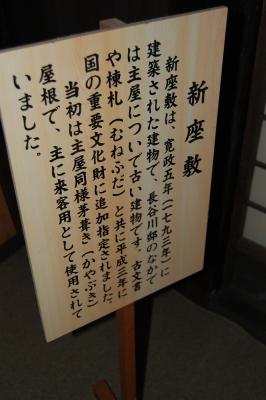 新座敷
新座敷は、寛政五年(一七九三年)に
建築された建物で、長谷川邸のなかで
は主屋についで古い建物です。古文書
や棟札(むねふだ)と共に平成三年に
国の重要文化財に追加指定されました。
当初は主屋同様茅葺き(かやぶき)
屋根で、主に来客用として使用されて
いました。